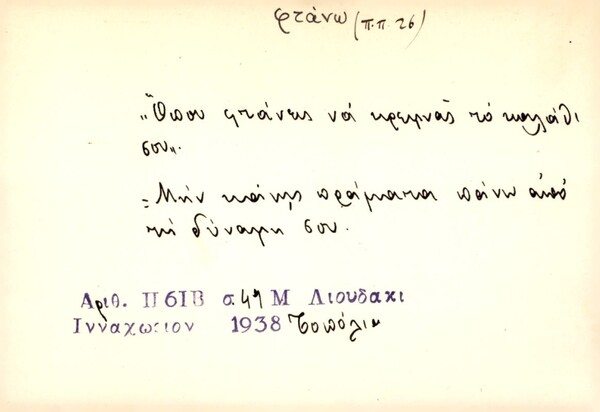 φτάνω (π.π. 26)
„Ὅπου φτάνεις νά κρεμνᾷς τό καλάθι
σου".
= Μήν κάνῃς πράματα πάνω ἀπό
τή δύναμη σου.
Αριθ. Π61Β σ. 47 Μ Λιουδακι
Ινναχωριον 1938 Τοπόλια